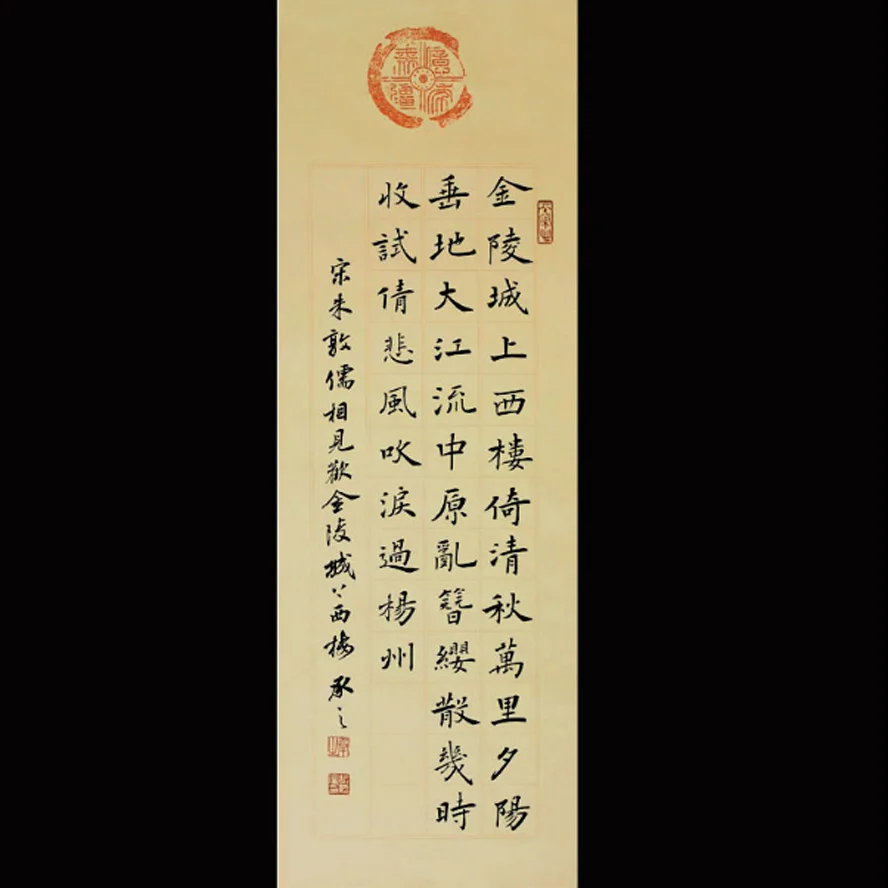 億年無疆
金陵城上西樓倚清秋萬里夕陽
垂地大江流中原亂簪纓散幾時
收試倩悲風吹淚過楊州
宋朱敦儒相見歡金陵城上西樓 承之